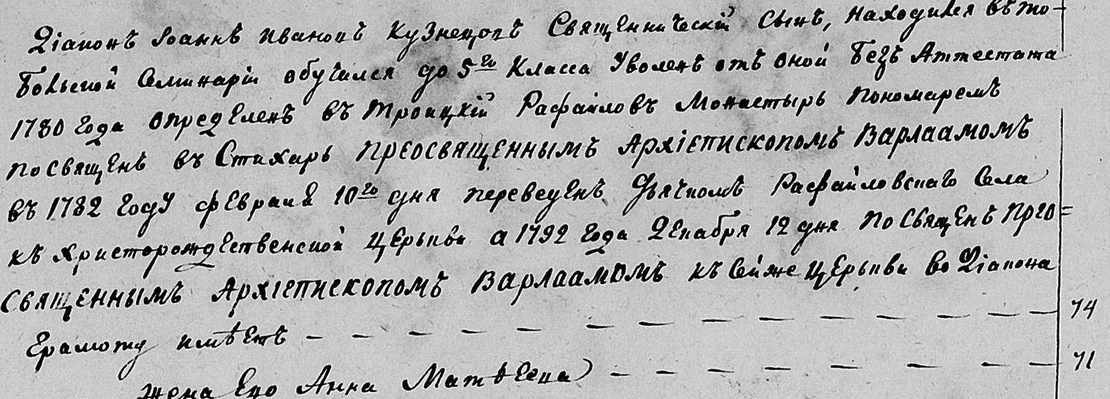 Діаконъ Іоаннъ Ивановъ Кузнецовъ Священническій сынъ, находился въ то-
больской Семинаріи обучался до 5го Класса Уволенъ отъ оной безъ Аттестата
1780 Года опредѣленъ въ Троицкій Рафаиловъ Монастырь Пономаремъ
посвященъ въ Стихарь Преосвященнымъ Архіепископомъ Варлаамомъ
въ 1782 Году Февраля 10го дня переведенъ Дьячкомъ Рафаиловскаго Села
къ Христорождественской церькви а 1792 Года Декабря 12 дня Посвященъ Прео=
священнымъ Архіепископомъ Варлаамомъ къ сейже церькви во Діакона
Грамоту имѣетъ — — — — — — — — — — — — 74
жена Его Анна Матѳеева — — — — — — — — 71